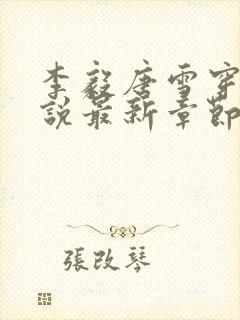 李毅唐雪穿
說最新章節
張改琴